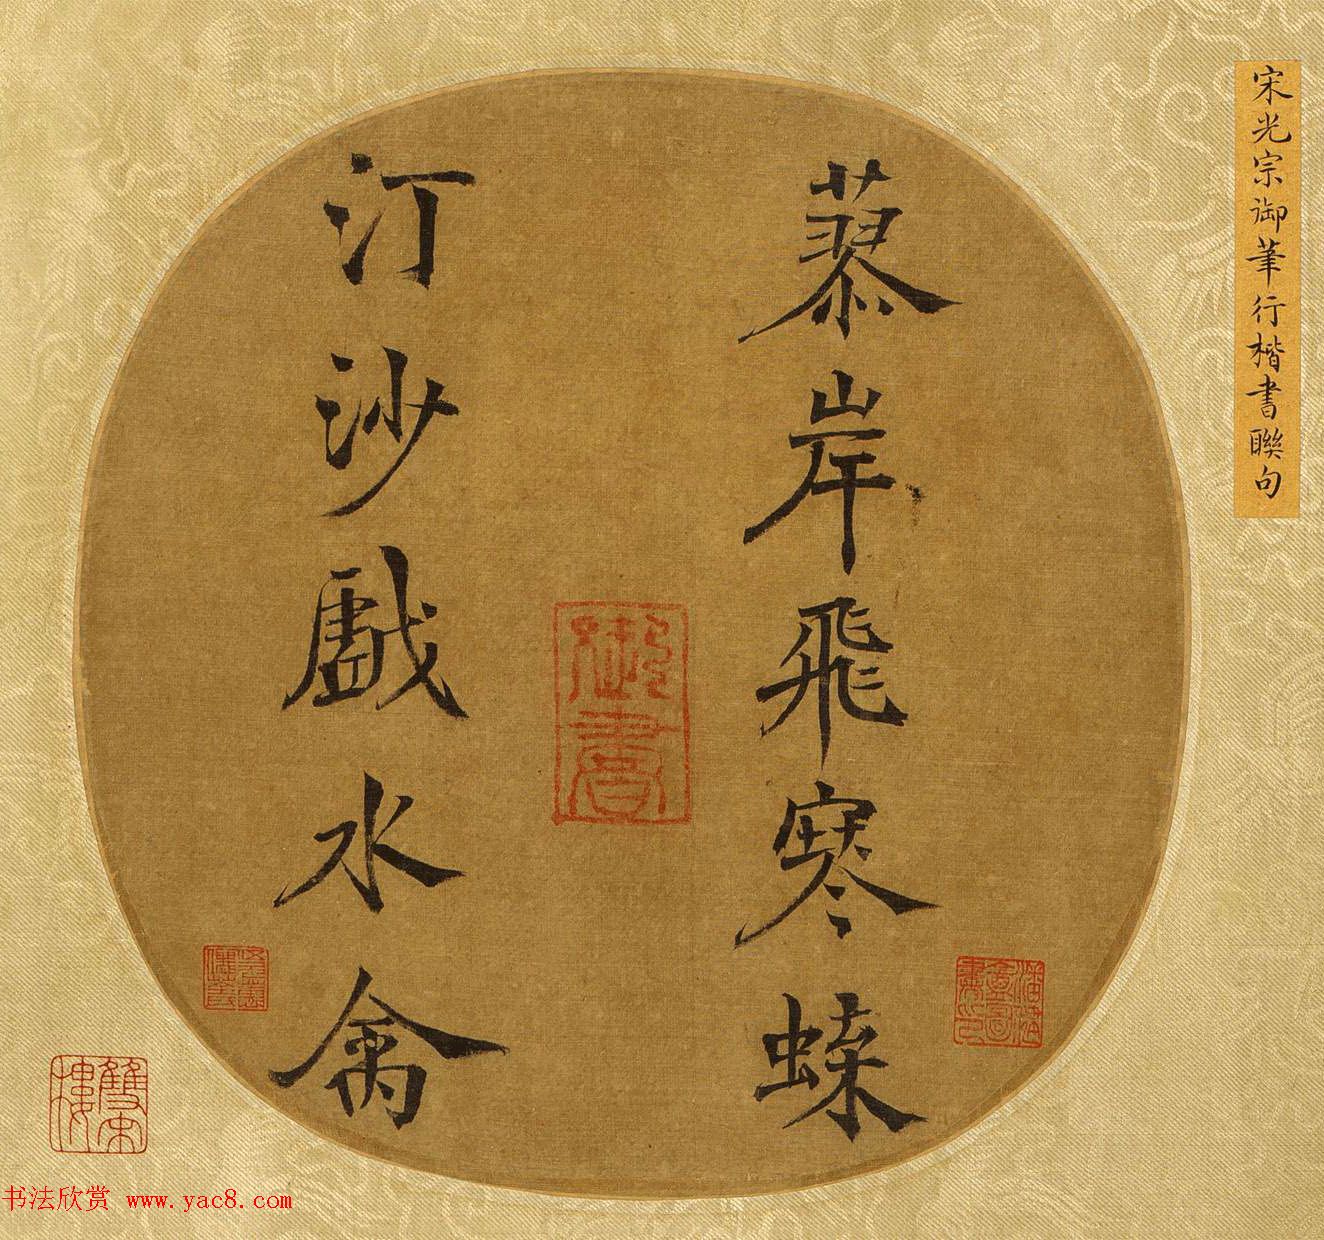 宋光宗御筆行楷書聯句
蓼岸飛寒蝶
御書
汀沙戲水禽
雙宋樓
书法欣赏 www.yac8.com